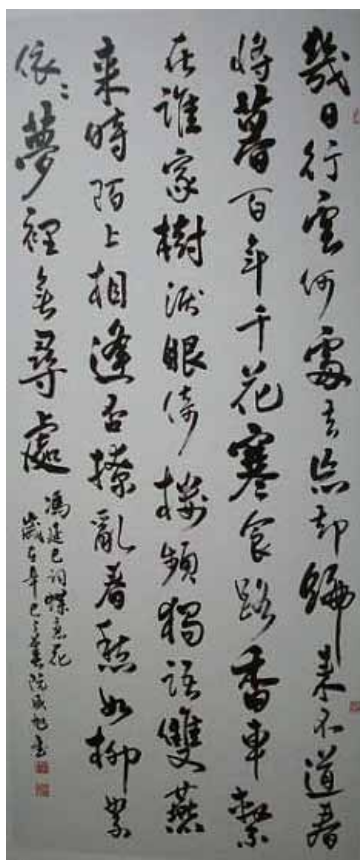 幾日行雲何處去忘却歸来不道春
將暮百草千花寒食路香車繫
在誰家樹淚眼倚樓頻獨語雙燕
来時陌上相逢否撩亂春愁如柳絮
依〻夢裡無尋處
馮延巳詞蝶恋花
歲在辛巳之